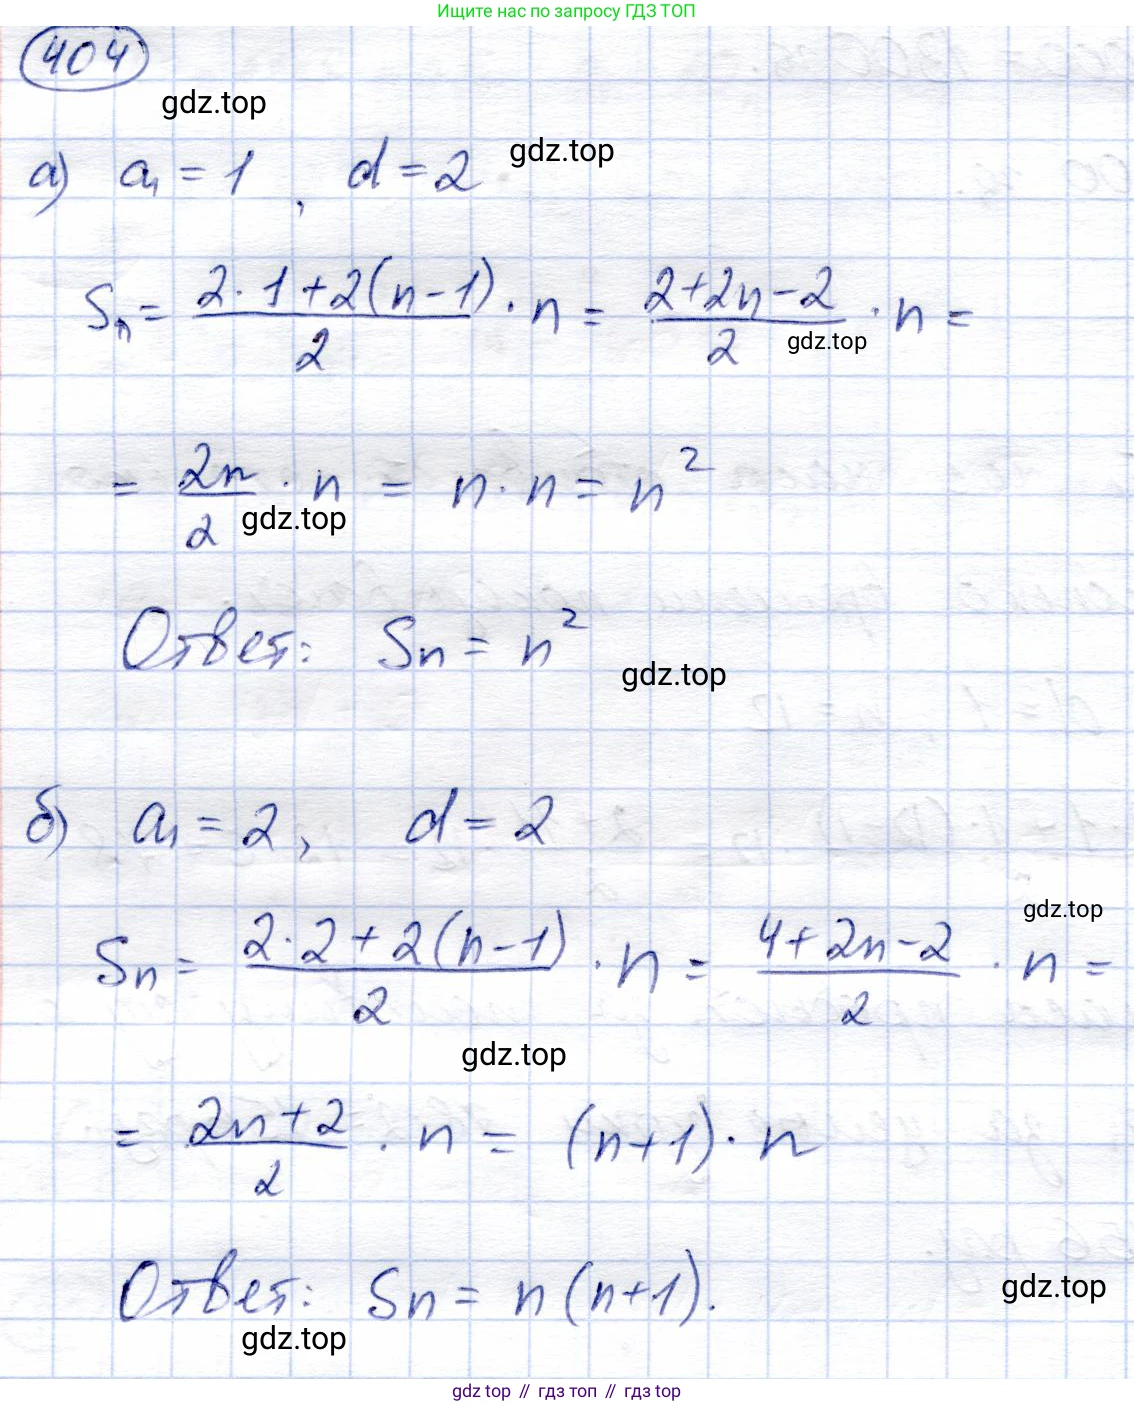 Ищите нас по запросу ГДЗ ТОП
404
gdz.top
а) a₁ = 1, d = 2
gdz.top
Sₙ = (2·1 + 2(n-1))/2 · n = (2+2n-2)/2 · n =
gdz.top
= 2n/2 · n = n · n = n²
gdz.top
Ответ: Sn = n²
gdz.top
б) a₁ = 2, d = 2
gdz.top
Sn = (2·2 + 2(n-1))/2 · n = (4+2n-2)/2 · n =
gdz.top
= (2n+2)/2 · n = (n+1) · n
gdz.top
Ответ: Sn = n(n+1).
gdz.top
gdz top // гдз топ // гдз top